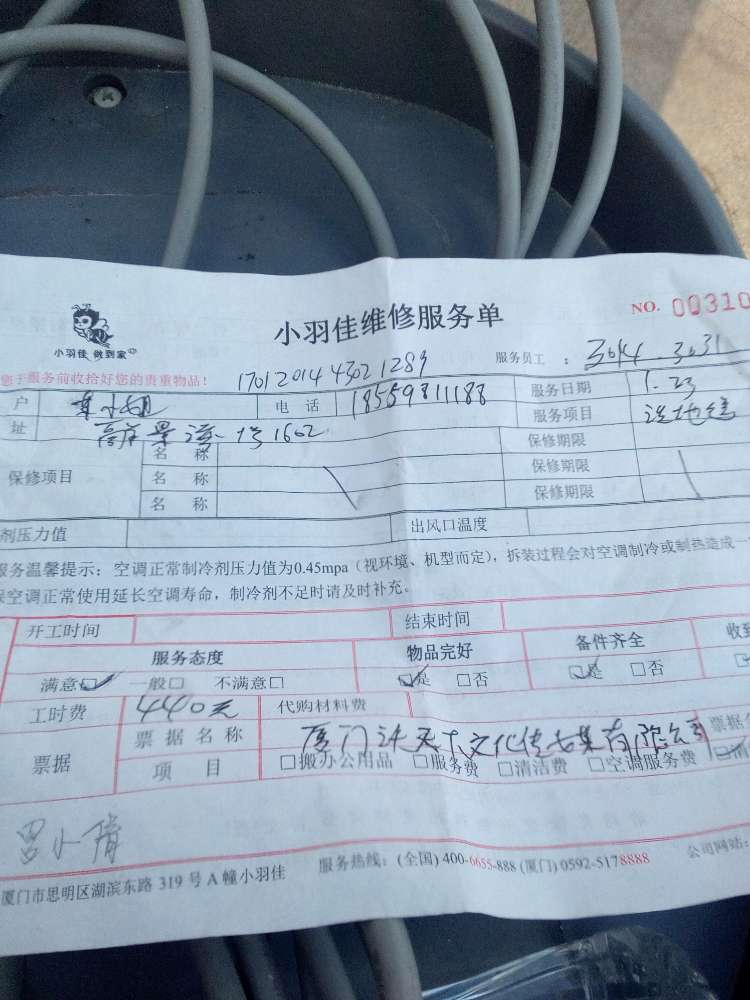 小羽佳 做到家
小羽佳维修服务单
NO. 00310
您于服务前收拾好您的贵重物品！
1701201443021289
服务员工：3014.3031
户 小姐 电话 18559811188 服务日期 1.23
址 景 1号1602 服务项目 洗地毯
保修项目 名称 保修期限
名称 保修期限
名称 保修期限
剂压力值 出风口温度
服务温馨提示：空调正常制冷剂压力值为0.45mpa（视环境、机型而定），拆装过程会对空调制冷或制热造成一
保空调正常使用延长空调寿命，制冷剂不足时请及时补充。
开工时间 结束时间
服务态度 物品完好 备件齐全 收到
满意☑ 一般□ 不满意□ ☑是 □否 ☑是 □否
工时费 440元 代购材料费
票据 票据名称 厦门 天下文化传 集有限公司 票据
项目 □搬办公用品 □服务费 □清洁费 □空调服务费 ☑清
罗小
厦门市思明区湖滨东路 319 号 A 幢小羽佳 服务热线：(全国) 400-6655-888 (厦门) 0592-5178888 公司网站：